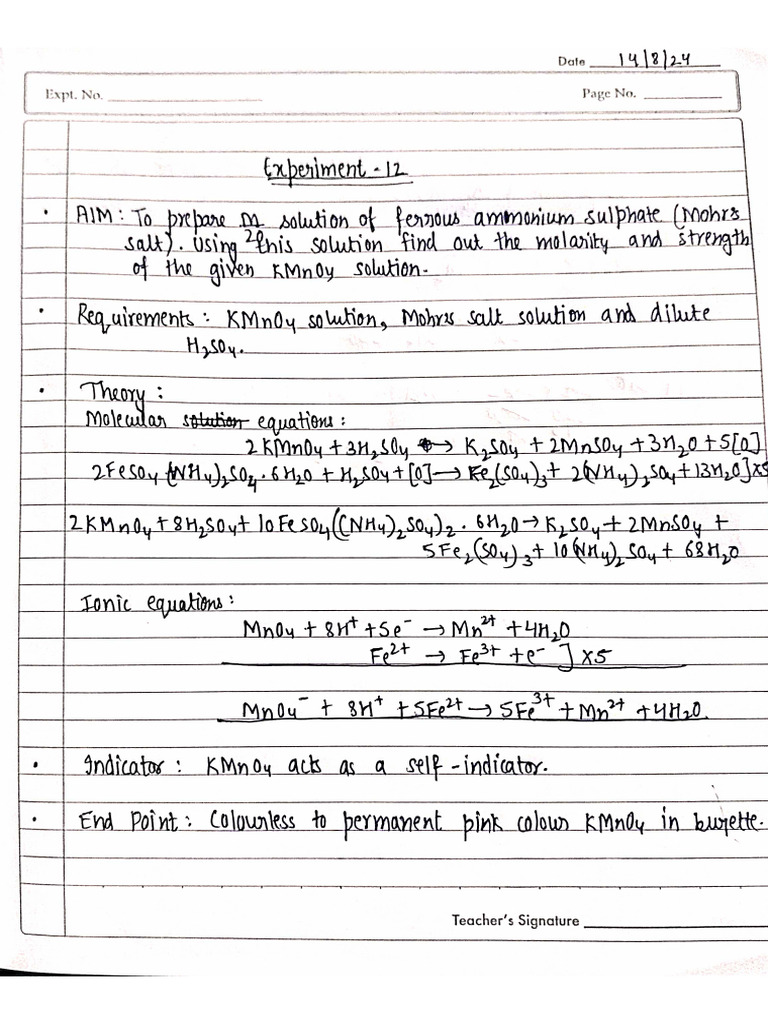 Date 14/8/24
Expt. No. Page No.
Experiment - 12
• AIM : To prepare M/20 solution of ferrous ammonium sulphate (Mohr's
salt). Using this solution find out the molarity and strength
of the given KMnO4 solution.
• Requirements : KMnO4 solution, Mohr's salt solution and dilute
H2SO4.
• Theory :
Molecular solution equations :
2KMnO4 + 3H2SO4 → K2SO4 + 2MnSO4 + 3H2O + 5[O]
2FeSO4 (NH4)2SO4 · 6H2O + H2SO4 + [O] → Fe2(SO4)3 + 2(NH4)2SO4 + 13H2O] x5
2KMnO4 + 8H2SO4 + 10FeSO4((NH4)2SO4)2 · 6H2O → K2SO4 + 2MnSO4 +
5Fe2(SO4)3 + 10(NH4)2SO4 + 68H2O
Ionic equations :
MnO4 + 8H+ + 5e- → Mn2+ + 4H2O
Fe2+ → Fe3+ + e- ] x5
MnO4- + 8H+ + 5Fe2+ → 5Fe3+ + Mn2+ + 4H2O
• Indicator : KMnO4 acts as a self-indicator.
• End Point : Colourless to permanent pink colour KMnO4 in burette.
Teacher's Signature